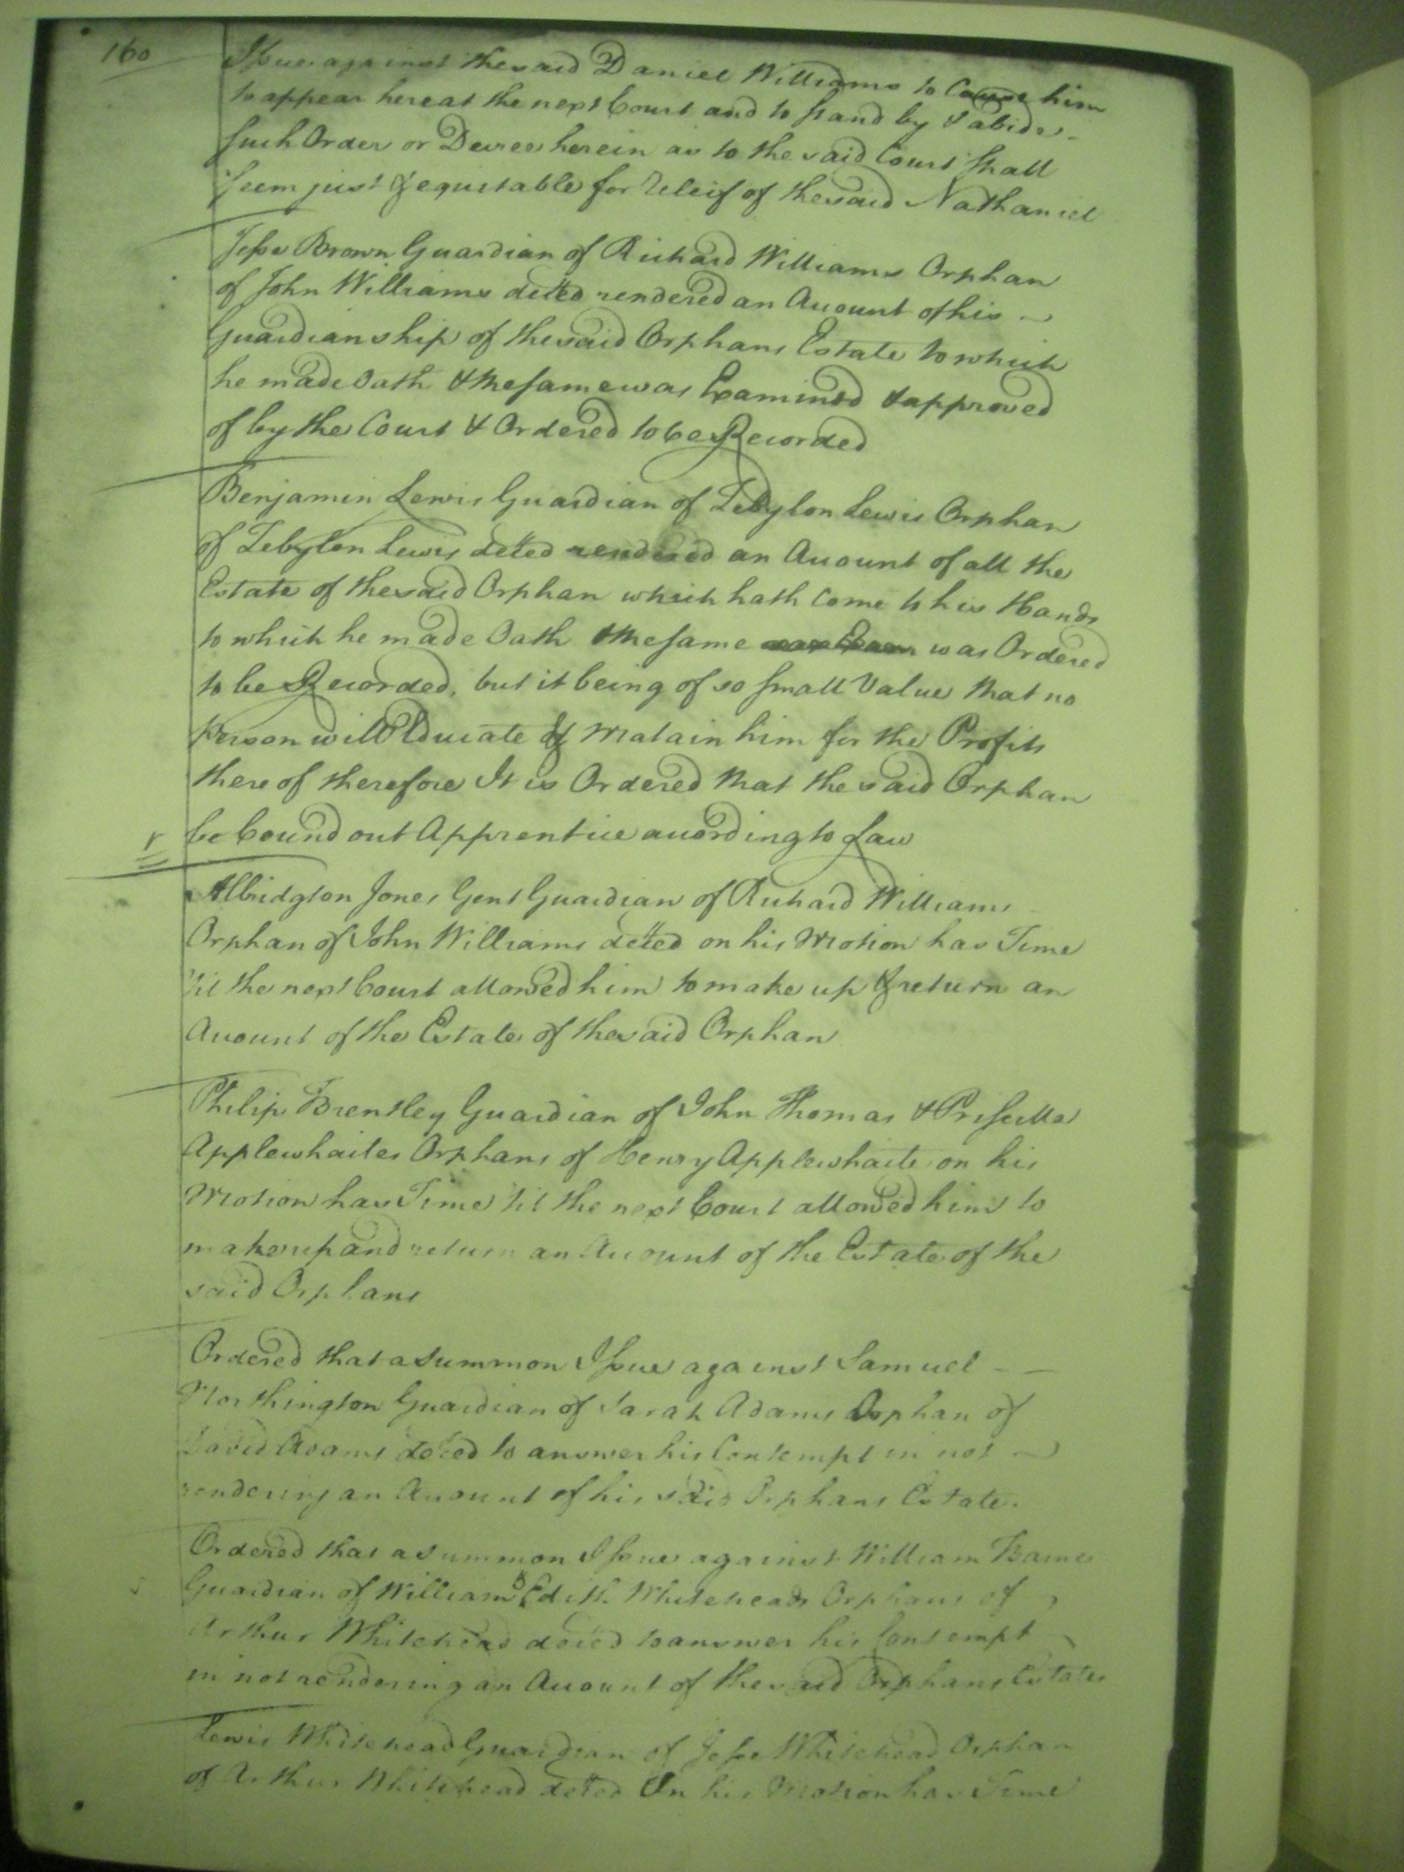 160
Issue against the said Daniel Williams to Cause him
to appear here at the next Court and to stand by & abide
such Order or Decree herein as to the said Court shall
seem just & equitable for Releif of the said Nathaniel
Jesse Brown Guardian of Richard Williams Orphan
of John Williams deced rendered an Account of his
Guardianship of the said Orphans Estate to which
he made Oath & the same was Examined & approved
of by the Court & Ordered to be Recorded
Benjamin Lewis Guardian of Zebylon Lewis Orphan
of Zebylon Lewis deced rendered an Account of all the
Estate of the said Orphan which hath come to his Hands
to which he made Oath & the same was Ordered
to be Recorded, but it being of so small Value that no
Person will Educate & Matain him for the Profits
there of therefore It is Ordered that the said Orphan
be bound out Apprentice according to Law
Albridgton Jones Gent Guardian of Richard Williams
Orphan of John Williams deced on his Motion has Time
'til the next Court allowed him to make up & return an
Account of the Estate of the said Orphan
Philip Brentley Guardian of John Thomas & Priscilla
Applewhaites Orphans of Henry Applewhaite on his
Motion has Time 'til the next Court allowed him to
make up and return an Account of the Estate of the
said Orphans
Ordered that a Summon Issue against Samuel
Northington Guardian of Sarah Adams Orphan of
David Adams deced to answer his Contempt in not
rendering an Account of his said Orphans Estate.
Ordered that a Summon Issue against William Barnes
Guardian of William & Edith Whiteheads Orphans of
Arthur Whitehead deced to answer his Contempt
in not rendering an Account of the said Orphans Estates
Lewis Whitehead Guardian of Jesse Whitehead Orphan
of Arthur Whitehead deced On his Motion has Time